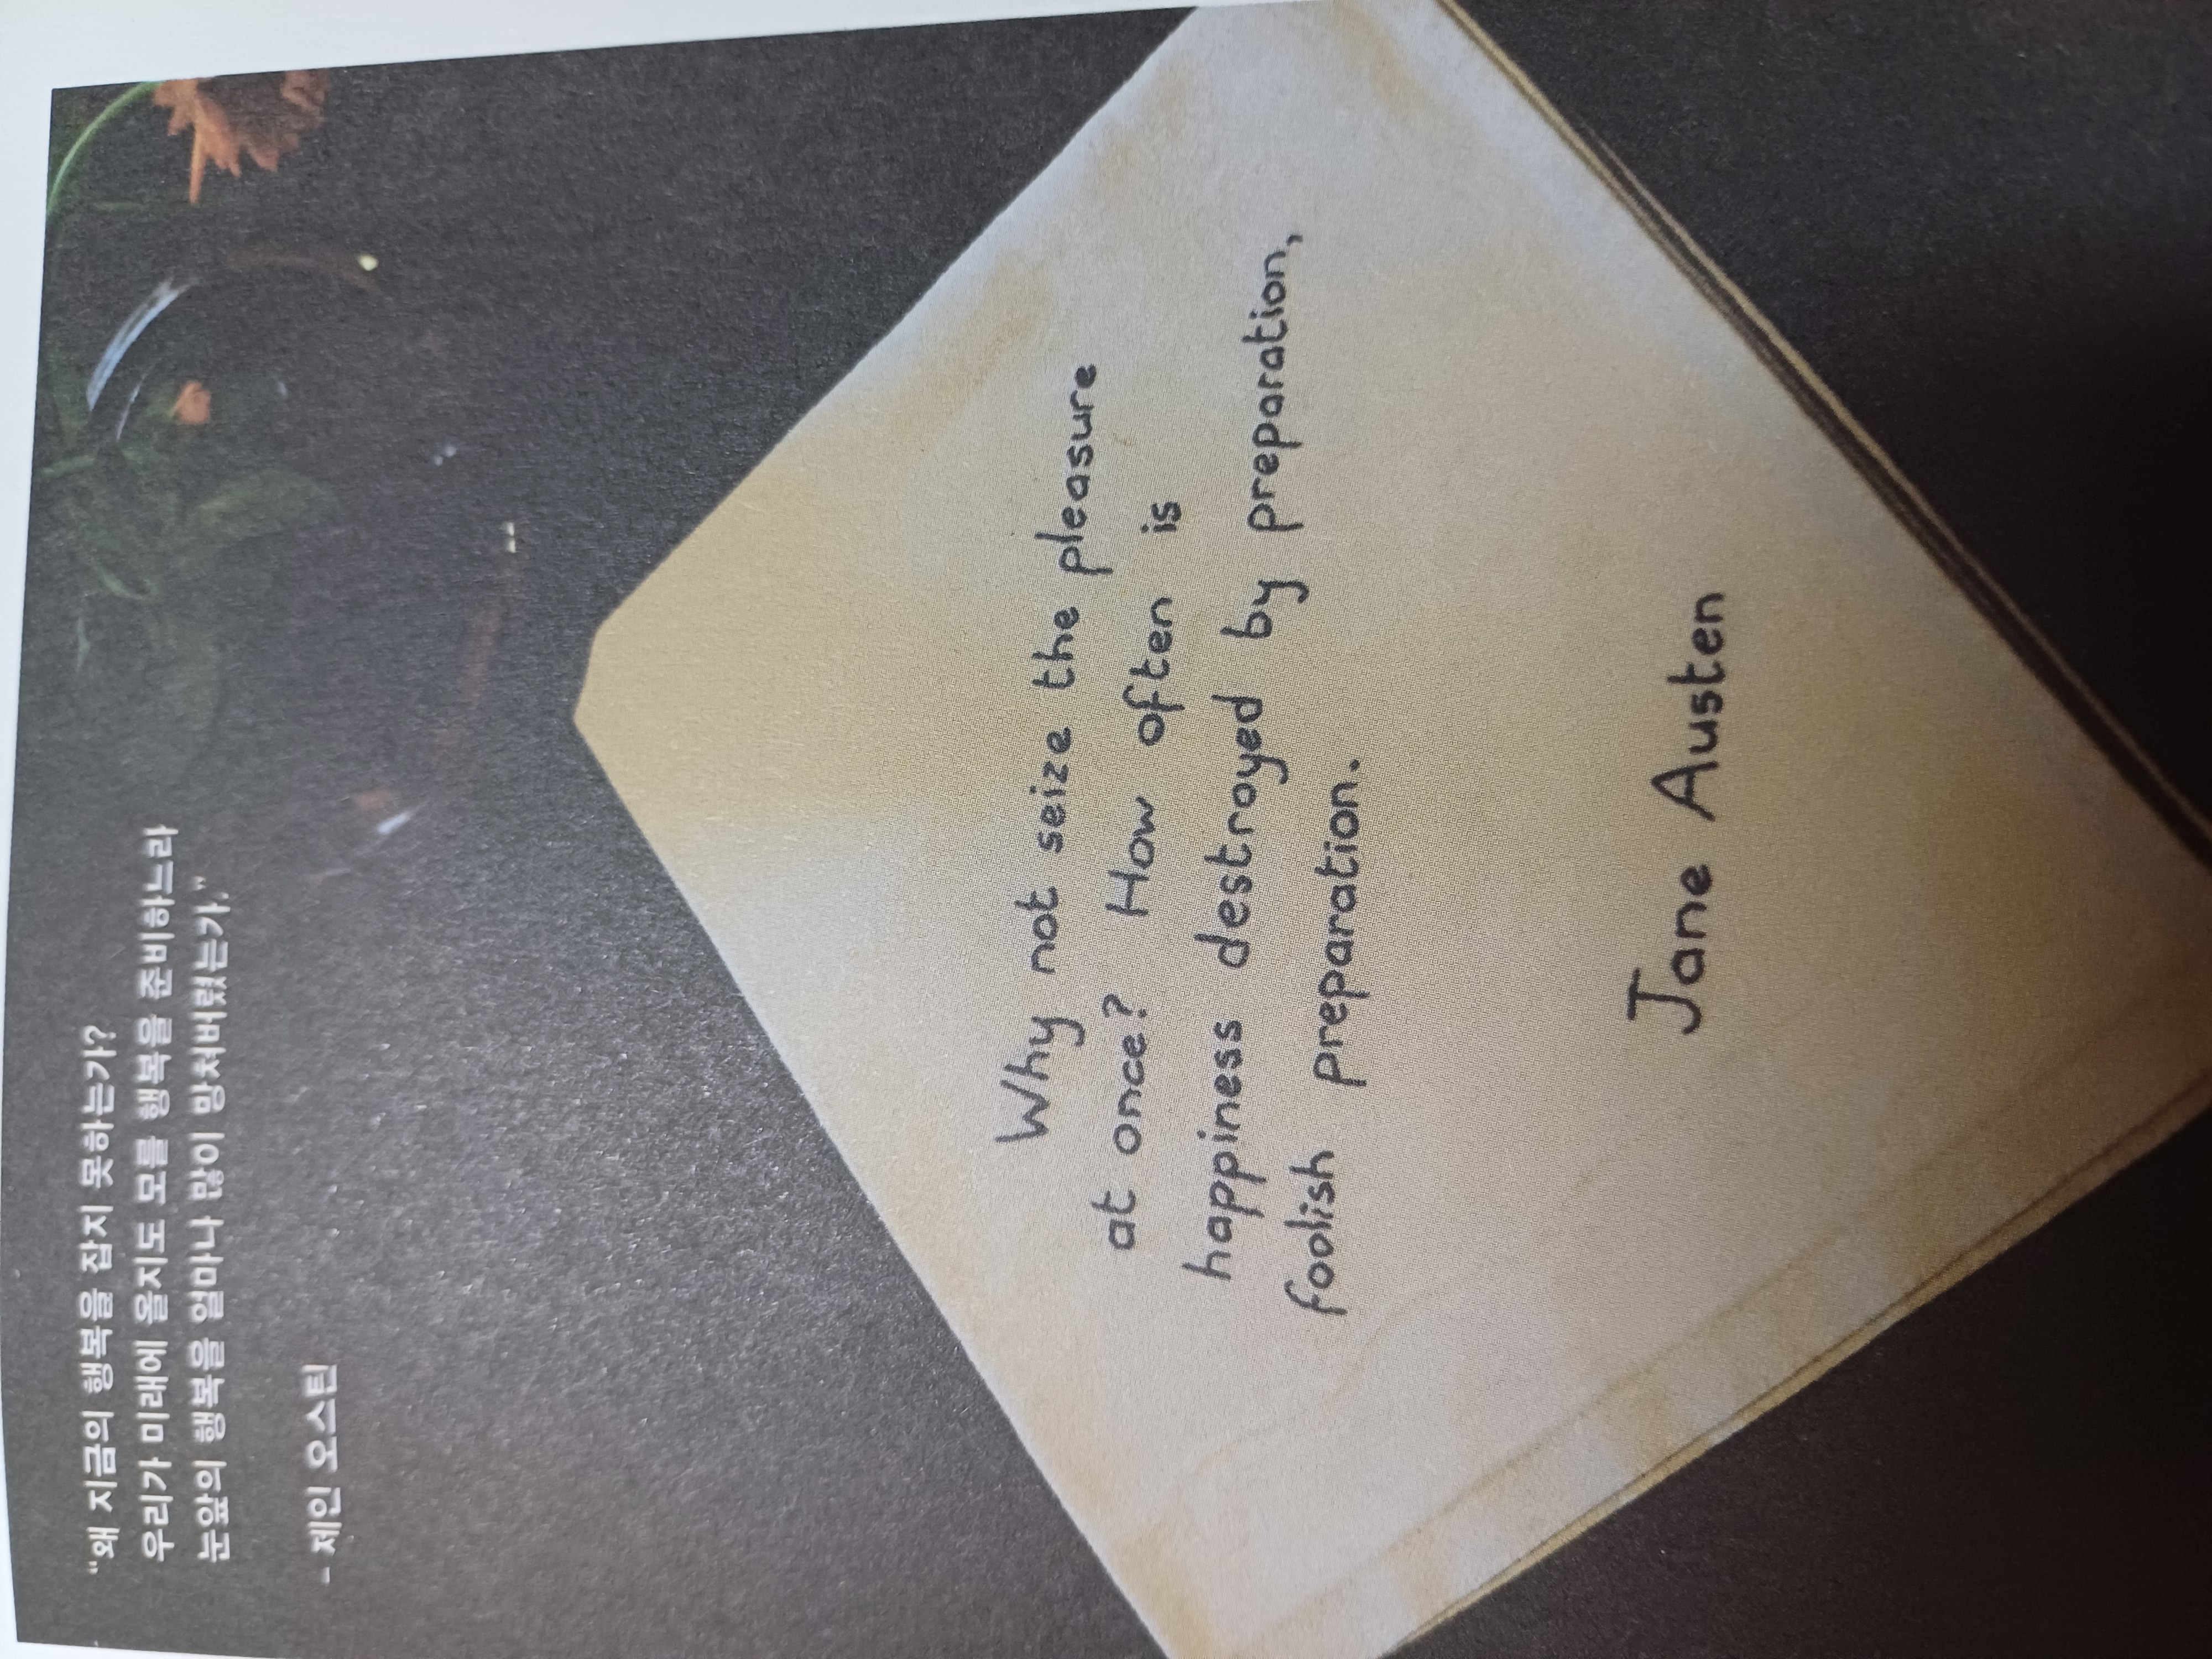 "왜 지금의 행복을 잡지 못하는가?
우리가 미래에 올지도 모를 행복을 준비하느라
눈앞의 행복을 얼마나 많이 망쳐버렸는가."
- 제인 오스틴
Why not seize the pleasure
at once? How often is
happiness destroyed by preparation,
foolish preparation.
Jane Austen